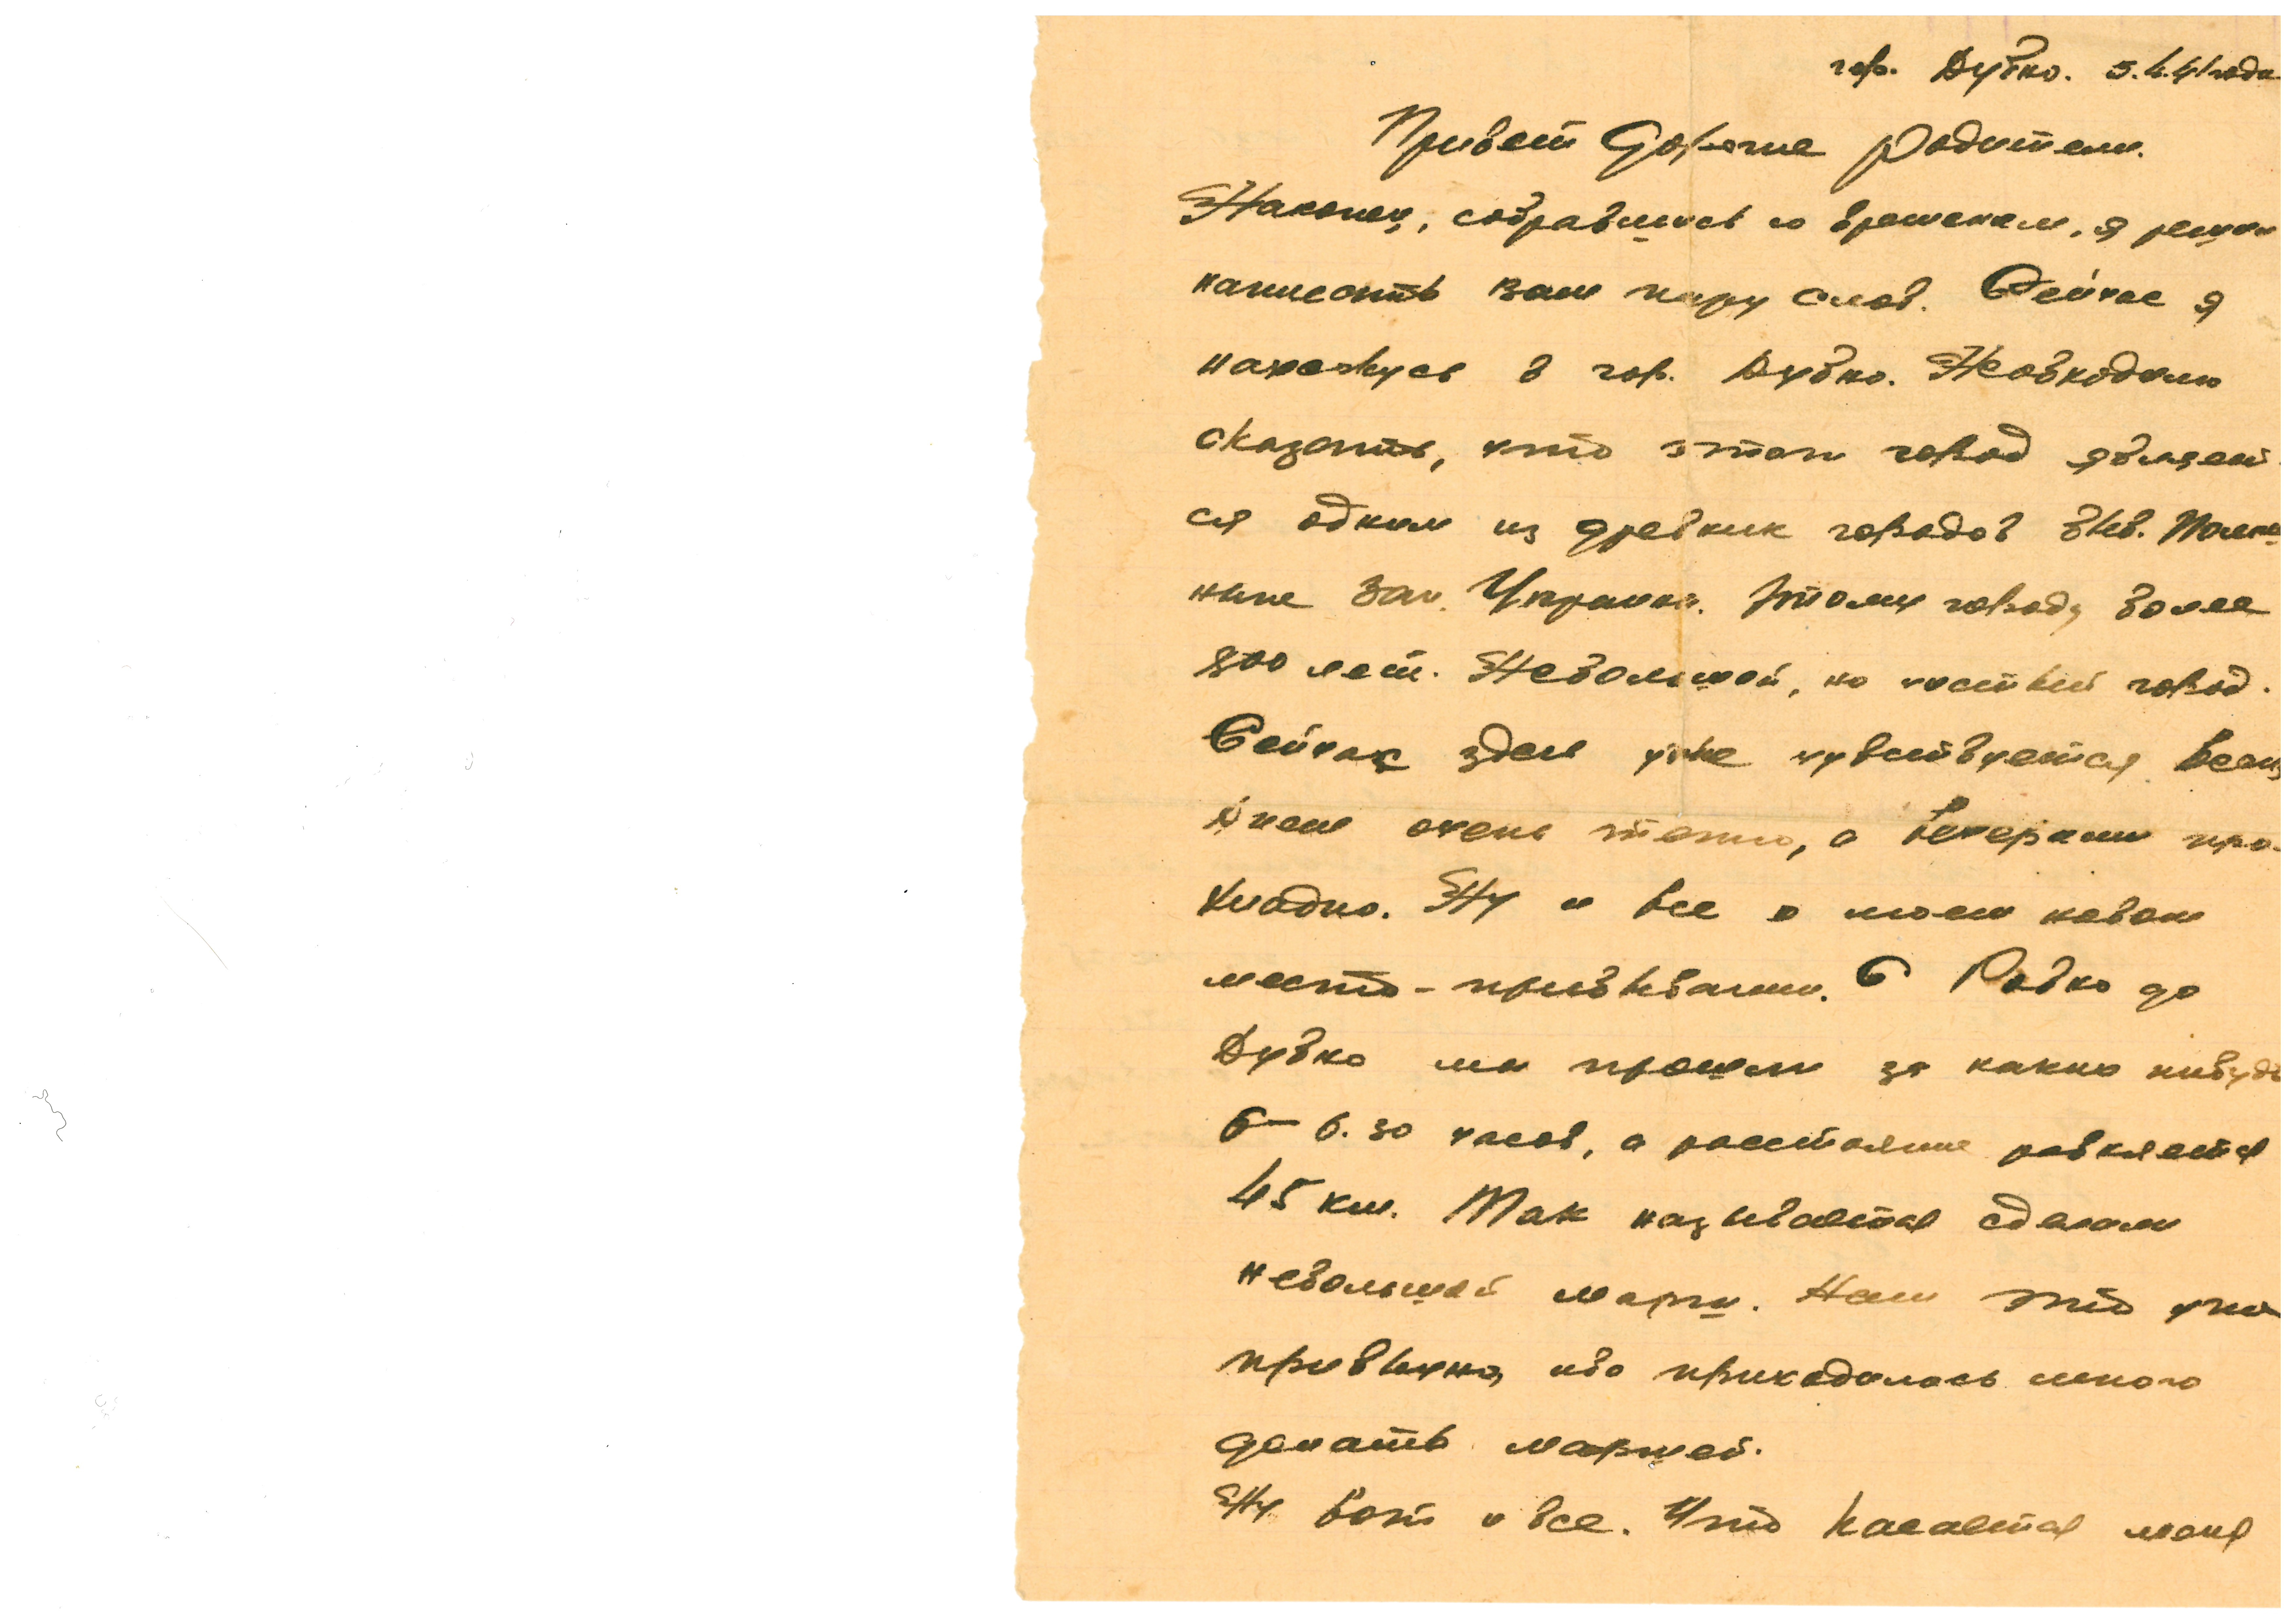 гор. Дубно. 5.4.41 года
Привет дорогие родители.
Наконец, собравшись со временем, я решил
написать вам пару слов. Сейчас я
нахожусь в гор. Дубно. Необходимо
сказать, что этот город являет-
ся одним из древних городов быв. Польши
ныне Зап. Украина. Этому городу более
800 лет. Небольшой, но чистый город.
Сейчас здесь уже чувствуется весна
Днем очень тепло, а вечерами про-
хладно. Ну и все о моем новом
место-пребывании. С Ровно до
Дубно мы прошли за каких нибудь
6-6.30 часов, а расстояние равняется
45 км. Так называется сделали
небольшой марш. Нам это уже
привычно, ибо приходилось много
делать маршей.
Ну вот и все. Что касается меня